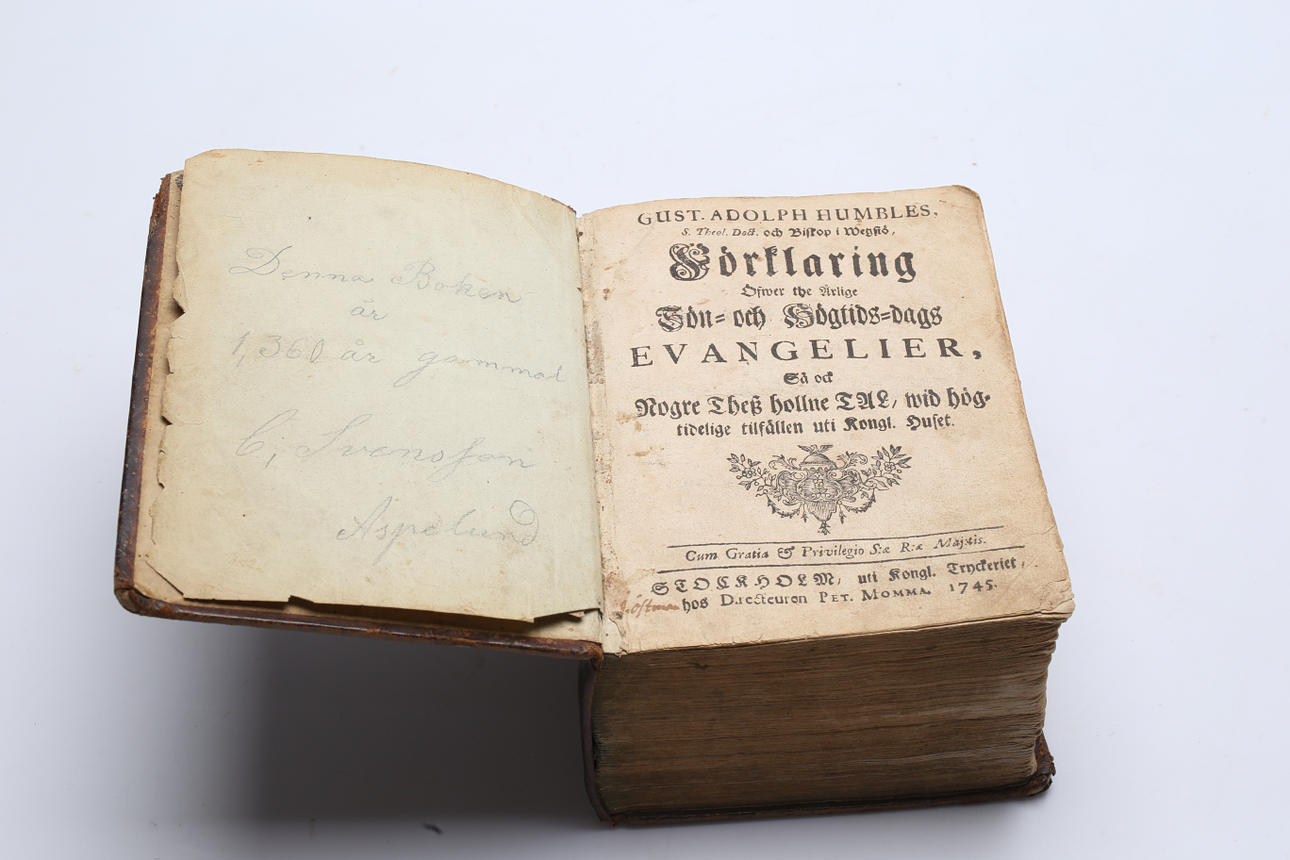 Denna Boken
är
1,360 år gammal
C, Svensson
Aspelund
GUST. ADOLPH HUMBLES,
S. Theol. Doct. och Biskop i Wegsiö,
Förklaring
Öfwer the Årlige
Sön- och Högtids-dags
EVANGELIER,
Så ock
Nogre Theß hollne TAL, wid hög-
tidelige tilfällen uti Kongl. Huset.
Cum Gratia & Privilegio S:æ R:æ Maj:tis.
STOCKHOLM, uti Kongl. Tryckeriet,
hos Directeuren PET. MOMMA. 1745.